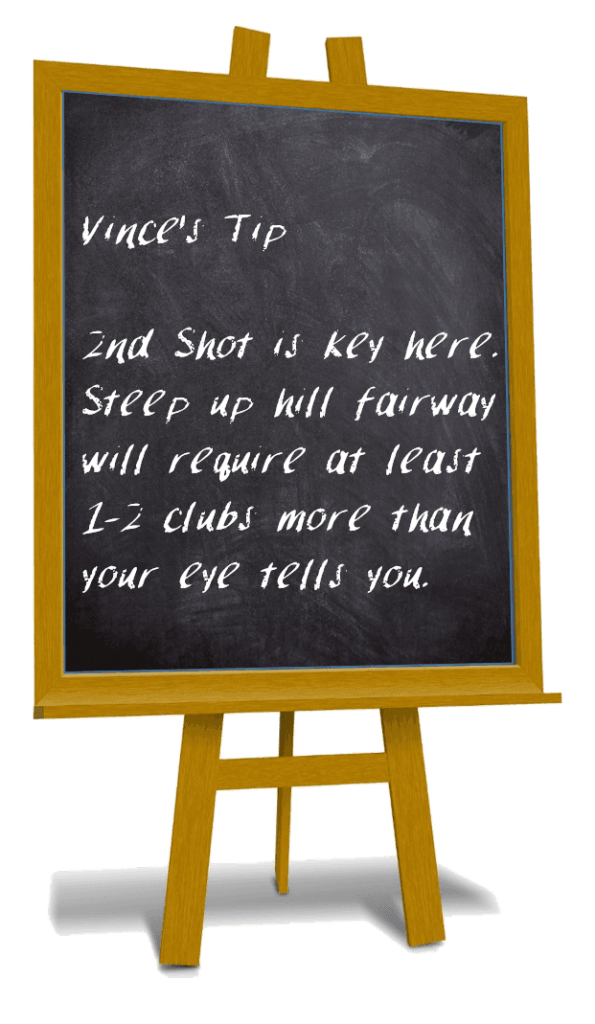 Vince's Tip
2nd Shot is key here.
Steep up hill fairway
will require at least
1-2 clubs more than
your eye tells you.